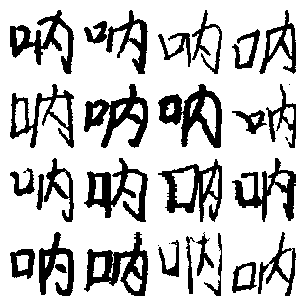 呐呐呐呐
呐呐呐呐
呐呐呐呐
呐呐呐呐